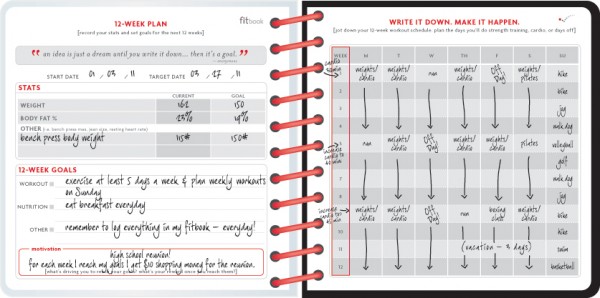 12-WEEK PLAN
[record your stats and set goals for the next 12 weeks]
fitbook
“ an idea is just a dream until you write it down... then it's a goal. ”
- anonymous
START DATE 01 / 03 / 11 TARGET DATE 03 / 27 / 11
STATS
CURRENT GOAL
WEIGHT 162 150
BODY FAT % 23% 19%
OTHER (i.e. bench press max, jean size, resting heart rate)
bench press body weight 115# 150#
12-WEEK GOALS
WORKOUT exercise at least 5 days a week & plan weekly workouts
on Sunday
NUTRITION eat breakfast everyday
OTHER remember to log everything in my fitbook – everyday!
motivation
high school reunion!
for each week I reach my goals I get $10 shopping money for the reunion.
[what's driving you to reach your goal? what's your reward once you reach them?]
WRITE IT DOWN. MAKE IT HAPPEN.
[jot down your 12-week workout schedule. plan the days you'll do strength training, cardio, or days off]
WEEK M T W T F S SU
cardio
30 min
1 weights/cardio weights/cardio run weights/cardio Off Day weights/pilates bike
2 bike
3 jog
4 walk dog
increase
cardio to
45 min
5 run weights/cardio Off Day weights/cardio weights/cardio pilates volleyball
6 golf
7 jog
8 walk dog
increase
cardio to
60 min
9 weights/cardio weights/cardio Off Day run boxing class weights/cardio bike
10 bike
11 (vacation – 3 days) swim
12 basketball